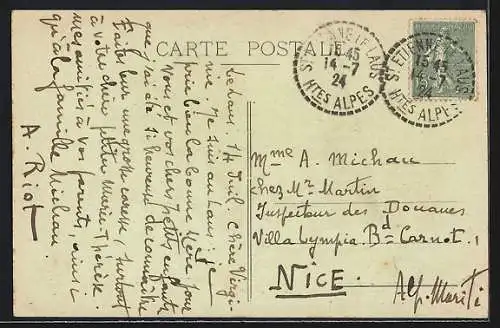 CARTE POSTALE
ST ETIENNE LE LAUS
15 45
14-7
24
HTES ALPES
ST ETIENNE LAUS
15 45
14-7
24
HTES ALPES
Le Laus. 14 Juil. Chère Virgi-
nie Je suis au Laus: je
prie bien la bonne Mère pour
Vous et vos chers petits enfants
que j'ai été si heureuse de connaître
Faites leur une grosse caresse, surtout
à votre chère petite Marie-Thérèse.
mes amitiés à vos parents, ainsi
qu'à la famille Michau
A. Riot
Mme A. Michau
Chez Mr Martin
Inspecteur des Douanes
Villa Lympia. Bd Carnot. 1
NICE.
Alp. Marit.